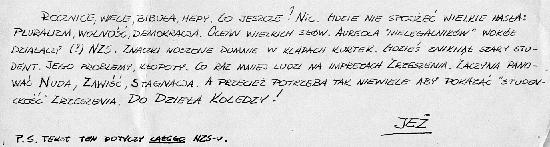 Rocznice, wele, bibuła, hepy. Co jeszcze! Nic. Gdzie nie spojrzeć wielkie hasła:
Pluralizm, wolność, demokracja. Ocean wielkich słów. Aureola "nielegalników" wokół
działaczy (!) NZS. Znaczki noszone dumnie w klapach kurtek. Gdzieś zniknął szary stu-
dent. Jego problemy, kłopoty. Co raz mniej ludzi na imprezach Zrzeszenia. Zaczyna pano-
wać Nuda, Zawiść, Stagnacja. A przecież potrzeba tak niewiele aby pokazać "studen-
ckość" Zrzeszenia. Do Dzieła Koledzy!
JEŻ
P.S. Tekst ten dotyczy całego NZS-u.